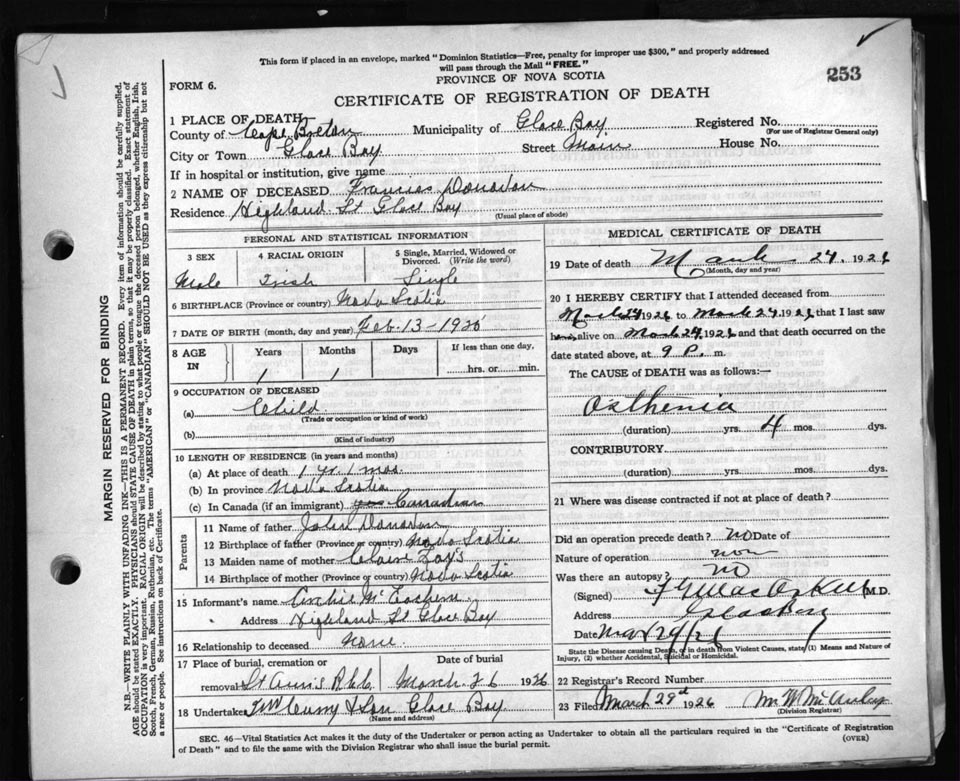 This form if placed in an envelope, marked "Dominion Statistics—Free, penalty for improper use $300," and properly addressed
will pass through the Mail "FREE."
PROVINCE OF NOVA SCOTIA
253
FORM 6.
CERTIFICATE OF REGISTRATION OF DEATH
MARGIN RESERVED FOR BINDING
N.B.—WRITE PLAINLY WITH UNFADING INK—THIS IS A PERMANENT RECORD. Every item of information should be carefully supplied.
AGE should be stated EXACTLY. PHYSICIANS should STATE CAUSE OF DEATH in plain terms, so that it may be properly classified. Exact statement of
OCCUPATION is very important. RACIAL ORIGIN will be described by stating to what people or tongue the deceased person belonged, whether English, Irish,
Scotch, French, German, Russian, Ruthenian, etc. The terms "AMERICAN" or "CANADIAN" SHOULD NOT BE USED as they express citizenship but not
a race or people. See instructions on back of Certificate.
1 PLACE OF DEATH
County of Cape Breton Municipality of Glace Bay Registered No.
(For use of Registrar General only)
City or Town Glace Bay Street Main House No.
If in hospital or institution, give name
2 NAME OF DECEASED Francies Donovan
Residence Highland St Glace Bay
(Usual place of abode)
PERSONAL AND STATISTICAL INFORMATION
3 SEX
4 RACIAL ORIGIN
5 Single, Married, Widowed or
Divorced. (Write the word)
Male Irish Single
6 BIRTHPLACE (Province or country) Nova Scotia
7 DATE OF BIRTH (month, day and year) Feb. 13-
8 AGE IN
Years Months Days If less than one day,
1 1 hrs. or min.
9 OCCUPATION OF DECEASED
(a) Child
(Trade or occupation or kind of work)
(b)
(Kind of industry)
10 LENGTH OF RESIDENCE (in years and months)
(a) At place of death 1 yr. 1 mos.
(b) In province Nova Scotia
(c) In Canada (if an immigrant) Canadian
Parents
11 Name of father John Donovan
12 Birthplace of father (Province or country) Nova Scotia
13 Maiden name of mother
14 Birthplace of mother (Province or country) Nova Scotia
15 Informant's name Archie
Address Highland St Glace Bay
16 Relationship to deceased None.
17 Place of burial, cremation or Date of burial
removal St Ann's March 26 1926
18 Undertaker & Son Glace Bay
(Name and address)
MEDICAL CERTIFICATE OF DEATH
19 Date of death March 24, 1926
(Month, day and year)
20 I HEREBY CERTIFY that I attended deceased from
March 24 1926 to March 24, 1926 that I last saw
alive on March 24 1926 and that death occurred on
date stated above, at 9 P. m.
The CAUSE of DEATH was as follows:—
Asthenia
(duration) yrs. 4 mos. dys.
CONTRIBUTORY.
(duration) yrs. mos. dys.
21 Where was disease contracted if not at place of death?
Did an operation precede death? no Date of
Nature of operation
Was there an autopsy? no
(Signed) M.D.
Address Glace Bay
Date Mar 24/26
State the Disease causing Death, or in death from Violent Causes, state (1) Means and Nature of
Injury, (2) whether Accidental, Suicidal or Homicidal.
22 Registrar's Record Number
23 Filed March 29th 1926
(Division Registrar)
SEC. 46—Vital Statistics Act makes it the duty of the Undertaker or person acting as Undertaker to obtain all the particulars required in the "Certificate of Registration
of Death" and to file the same with the Division Registrar who shall issue the burial permit.
(OVER)